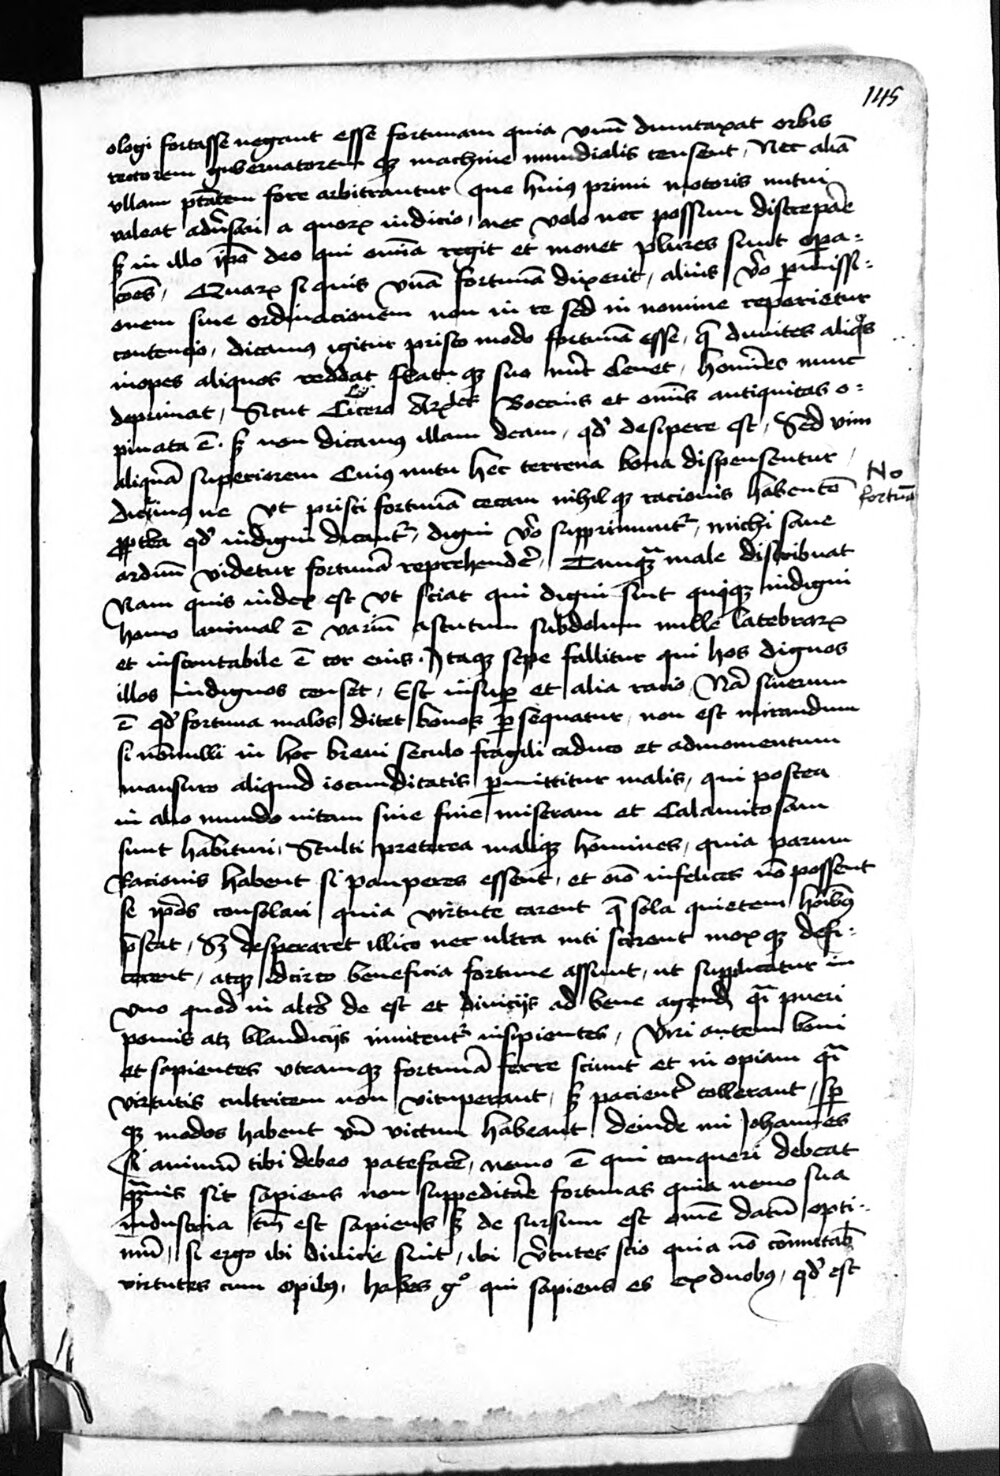 145
ologi fortasse negant esse fortunam quia vnū dumtaxat orbis
rectorem gubernatorem qꝫ machine mundialis censent, Nec aliā
vllam ptātem fore arbitrantur que huiꝰ primi motoris nutui
valeat adūsari a quorꝝ iudicio, nec volo nec possum discrepāre
sꝫ in illo ipō deo qui omīa regit et mouet plures sunt opa-
cōes, Quarꝝ si quis vnā fortunā dixerit, alius v̄o p̄missi-
onem siue ordinacionem non in re sed in nomine reperietur
contencio, dicamus igitur prisco modo fortunā esse, q̄ diuites aliqͦs
inopes aliquos reddat statu qꝫ suo nūc leuet, homīes nunc
deprimat, Sicut Cicero Boecius et omīs antiquitas o-
pinata ē. sꝫ non dicamꝰ illam deam, qđ desipere est, Sed vim
aliquā superiorem Cuiꝰ nutu hec terrena bona dispensentur,
No
fortūa
ne vt prisci fortunā cecam nihil qꝫ racionis habentē
ꝓptea qđ indigni ditant᷑, digni v̄o supprimunt᷑, michi sane
arduū videtur fortunā reprehendē, Tamqꝫ male distribuat
Nam quis iudex est vt sciat qui digni sint quiqꝫ indigni
homo animal ē variū astutum subdolum mille latebrarꝝ
et inscrutabile ē cor eius. Itaqꝫ sepe fallitur qui hos dignos
illos indignos censet, Est insuꝑ et alia racio, Nā si verum
ē qđ fortuna malos ditet bonos ꝑsequatur, non est mirandum
si nōnulli in hoc breui seculo fragili caduco et admomentum
mansuro aliquid iocunditatis ꝑmittitur malis, qui postea
in alio mundo vitam sine fine miseram et Calamitosam
sunt habituri, Stulti preterea maliqꝫ homines, quia parum
Racionis habent si pauperes essent, et om̄o infelices nō possent
se ip̄os consolari quia virtute carent q̄ sola quietem hoībꝰ
p̄stat, Sꝫ desperarent illico nec ultra niti scirent moxqꝫ defi-
cerent, atqꝫ idcirco beneficia fortune assunt, ut suppleatur in
vno quod in altō de est et diuicijs ad bene agend qͣ pueri
pomis atꝫ blandicijs inuitent᷑ insipientes, Viri autem boni
et sapientes vtramqꝫ fortunā ferre sciunt et in opiam qͣ
virtutis cultricem non vituperant, sꝫ pacient᷑ tollerant, sꝑ
qꝫ modos habent vn̄ victum habeant deinde mi Johannes
si animū tibi debeo patefacē, nemo ē qui conqueri debeat
qͣmuis sit sapiens non suppeditāre fortunas quia nemo sua
industria tm̄ est sapiens sꝫ de sursum est omē datū opti-
mū, si ergo ibi diuicie sint, ibi v̄tutes scio quia nō cōmutabis
virtutes cum opibꝰ, habes gͦ qui sapiens es ex duobꝰ, qđ est